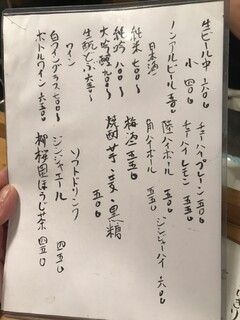 生ビール中 六〇〇
小 四〇〇
ノンアルビール 五〇〇
日本酒
純米 七〇〇〜
純吟 八〇〇〜
大吟醸 九〇〇〜
生酛どぶ 六五〇〜
ワイン
白ワイングラス 七〇〇〜
ボトルワイン 六五〇〇〜
チューハイプレーン 五〇〇
チューハイレモン 五五〇
陸ハイボール 五五〇
角ハイボール 五五〇
ジンジャーハイ 六〇〇
梅酒 五五〇
焼酎 芋・麦・黒糖 五五〇
ソフトドリンク
ジンジャエール 四五〇
柳桜園ほうじ茶 四五〇